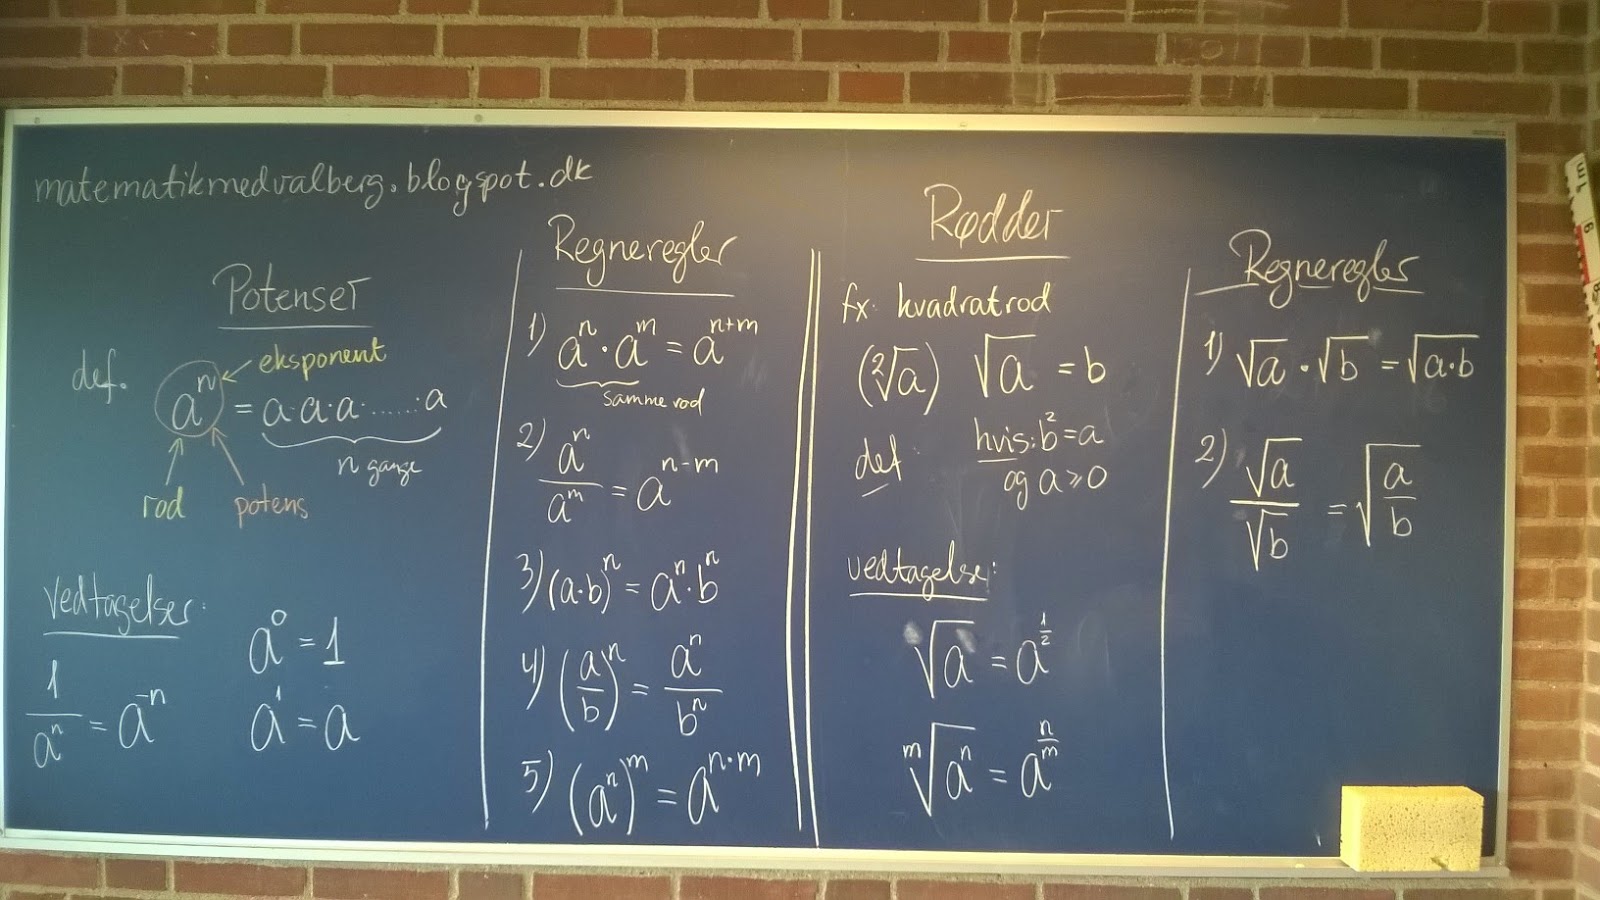 matematikmedvalberg.blogspot.dk
Potenser
def. aⁿ = a·a·a·......·a
eksponent
n gange
rod
potens
Vedtagelser:
1/aⁿ = a⁻ⁿ
a⁰ = 1
a¹ = a
Regneregler
1) aⁿ · aᵐ = aⁿ⁺ᵐ
samme rod
2) aⁿ/aᵐ = aⁿ⁻ᵐ
3) (a·b)ⁿ = aⁿ·bⁿ
4) (a/b)ⁿ = aⁿ/bⁿ
5) (aⁿ)ᵐ = a^(n·m)
Rødder
fx. kvadratrod
(²√a) √a = b
def: hvis: b² = a
og a ≥ 0
vedtagelse:
√a = a^(1/2)
ᵐ√aⁿ = a^(n/m)
Regneregler
1) √a · √b = √(a·b)
2) √a/√b = √(a/b)
E
6